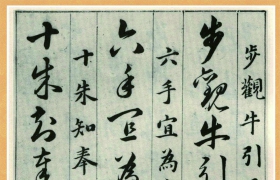 步觀牛引
步觀牛引
六手宜為
六手宜為
十朱知奉
十朱知奉